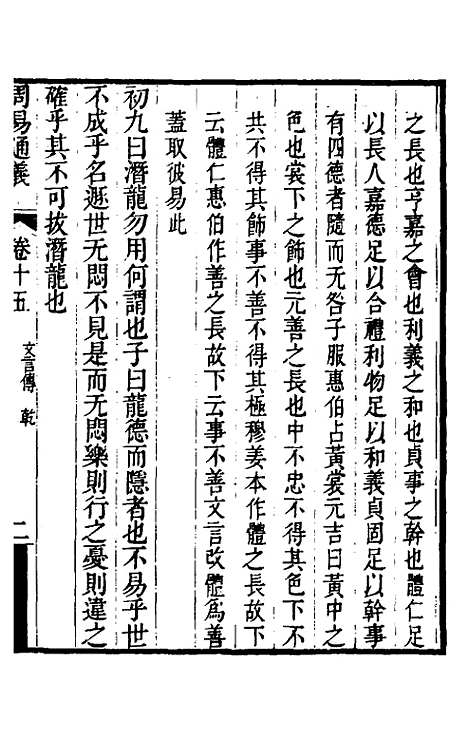 之長也亨嘉之會也利義之和也貞事之幹也體仁足
以長人嘉德足以合禮利物足以和義貞固足以幹事
有四德者隨而无咎子服惠伯占黃裳元吉曰黃中之
色也裳下之飾也元善之長也中不忠不得其色下不
共不得其飾事不善不得其極穆姜本作體之長故下
云體仁惠伯作善之長故下云事不善文言改體爲善
蓋取彼易此
初九曰潛龍勿用何謂也子曰龍德而隱者也不易乎世
不成乎名遯世无悶不見是而无悶樂則行之憂則違之
確乎其不可拔潛龍也
周易通義 卷十五 文言傳 乾 二